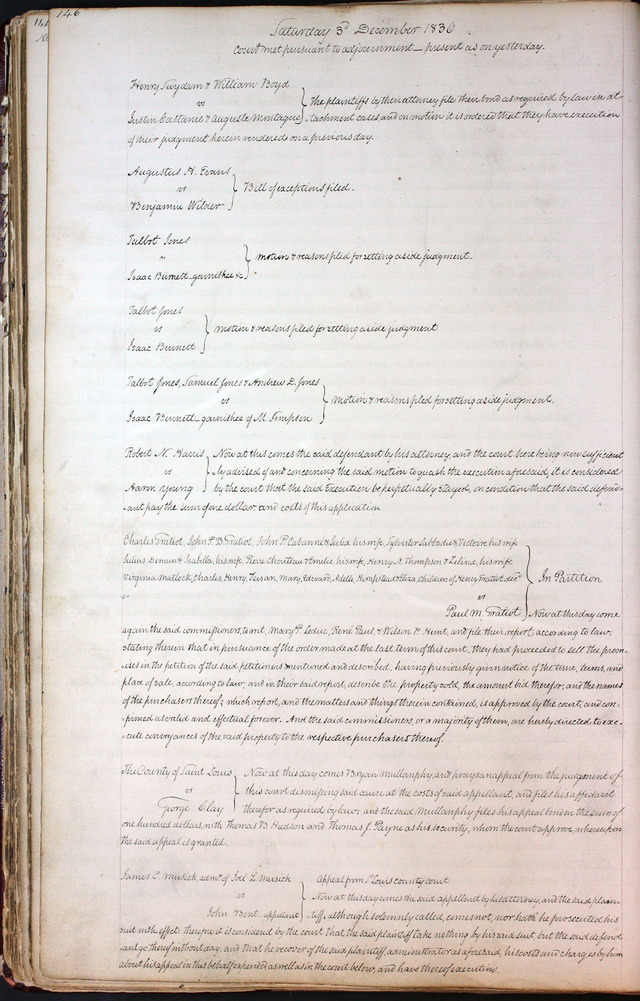 146
Saturday 3d December 1836
Court met pursuant to adjournment — present as on yesterday.
Henry Suydam & William Boyd
vs
Justin Cattanet & Auguste Montague
The plaintiffs by their attorney file their bond as required by law in at
tachment cases and on motion it is ordered that they have execution
of their judgment herein rendered on a previous day.
Augustus H. Evans
vs
Benjamin Wilder
Bill of exceptions filed.
Talbot Jones
"
Isaac Burnett garnishee &c
Motion & reasons filed for setting aside judgment.
Talbot Jones
vs
Isaac Burnett
Motion & reasons filed for setting aside judgment
Talbot Jones, Samuel Jones & Andrew D. Jones
vs
Isaac Burnett garnishee of M. Timpson
Motion & reasons filed for setting aside judgment.
Robert N. Harris
vs
Aaron Young
Now at this comes the said defendant by his attorney, and the court here being now sufficient
ly advised of and concerning the said motion to quash the execution aforesaid, it is considered
by the court that the said Execution be perpetually stayed, on condition that the said defend-
ant pay the sum of one dollar and costs of this application
Charles Fratiot, John P. B. Fratiot, John P. Cabanné & Julia his wife, Sylvester Labbadie & Victoire his wife
Julius Demun & Isabella, his wife, Pierre Chouteau & Emelie, his wife, Henry A. Thompson & Zeline, his wife
Virginia Mallock, Charles, Henry, Susan, Mary, Edward, Adelle, Hempstead & Eliza, children of Henry Fratiot decd
vs
Paul M. Fratiot
In Partition
Now at this day come
again the said commissioners, to wit, Mary P. Leduc, René Paul, & Wilson P. Hunt, and file their report according to law
stating therein that in pursuance of the order made at the last term of this court, they had proceeded to sell the prem-
ises in the petition of the said petitioners mentioned and described, having previously given notice of the time, terms, and
place of sale, according to law, and in their said report, describe the property sold, the amount bid therefor, and the names
of the purchasers thereof; which report, and the matters and things therein contained, is approved by the court, and con-
firmed as valid and effectual forever. And the said commissioners, or a majority of them, are hereby directed to exe-
cute conveyances of the said property to the respective purchasers thereof.
The County of Saint Louis
vs
George Clay
Now at this day comes Bryan Mullanphy, and prays an appeal from the judgment of
this court dismissing said cause at the costs of said appellant, and files his affidavit
therefor as required by law; and the said Mullanphy files his appeal bond in the sum of
one hundred dollars, with Thomas B. Hudson and Thomas J. Payne as his security, whom the court approve, whereupon
the said appeal is granted.
James C. Musick, admr. of Joel L. Musick
vs
John Bent appellant
Appeal from St Louis county court
Now at this day comes the said appellant by his attorney, and the said plain-
tiff, although solemnly called, comes not, nor hath he prosecuted his
suit with effect. therefore it is considered by the court that the said plaintiff take nothing by his said suit, but the said defend
ant go thereof without day, and that he recover of the said plaintiff, administrator as aforesaid, his costs and charges by him
about his appeal in this behalf expended as well as in the court below, and have thereof execution.